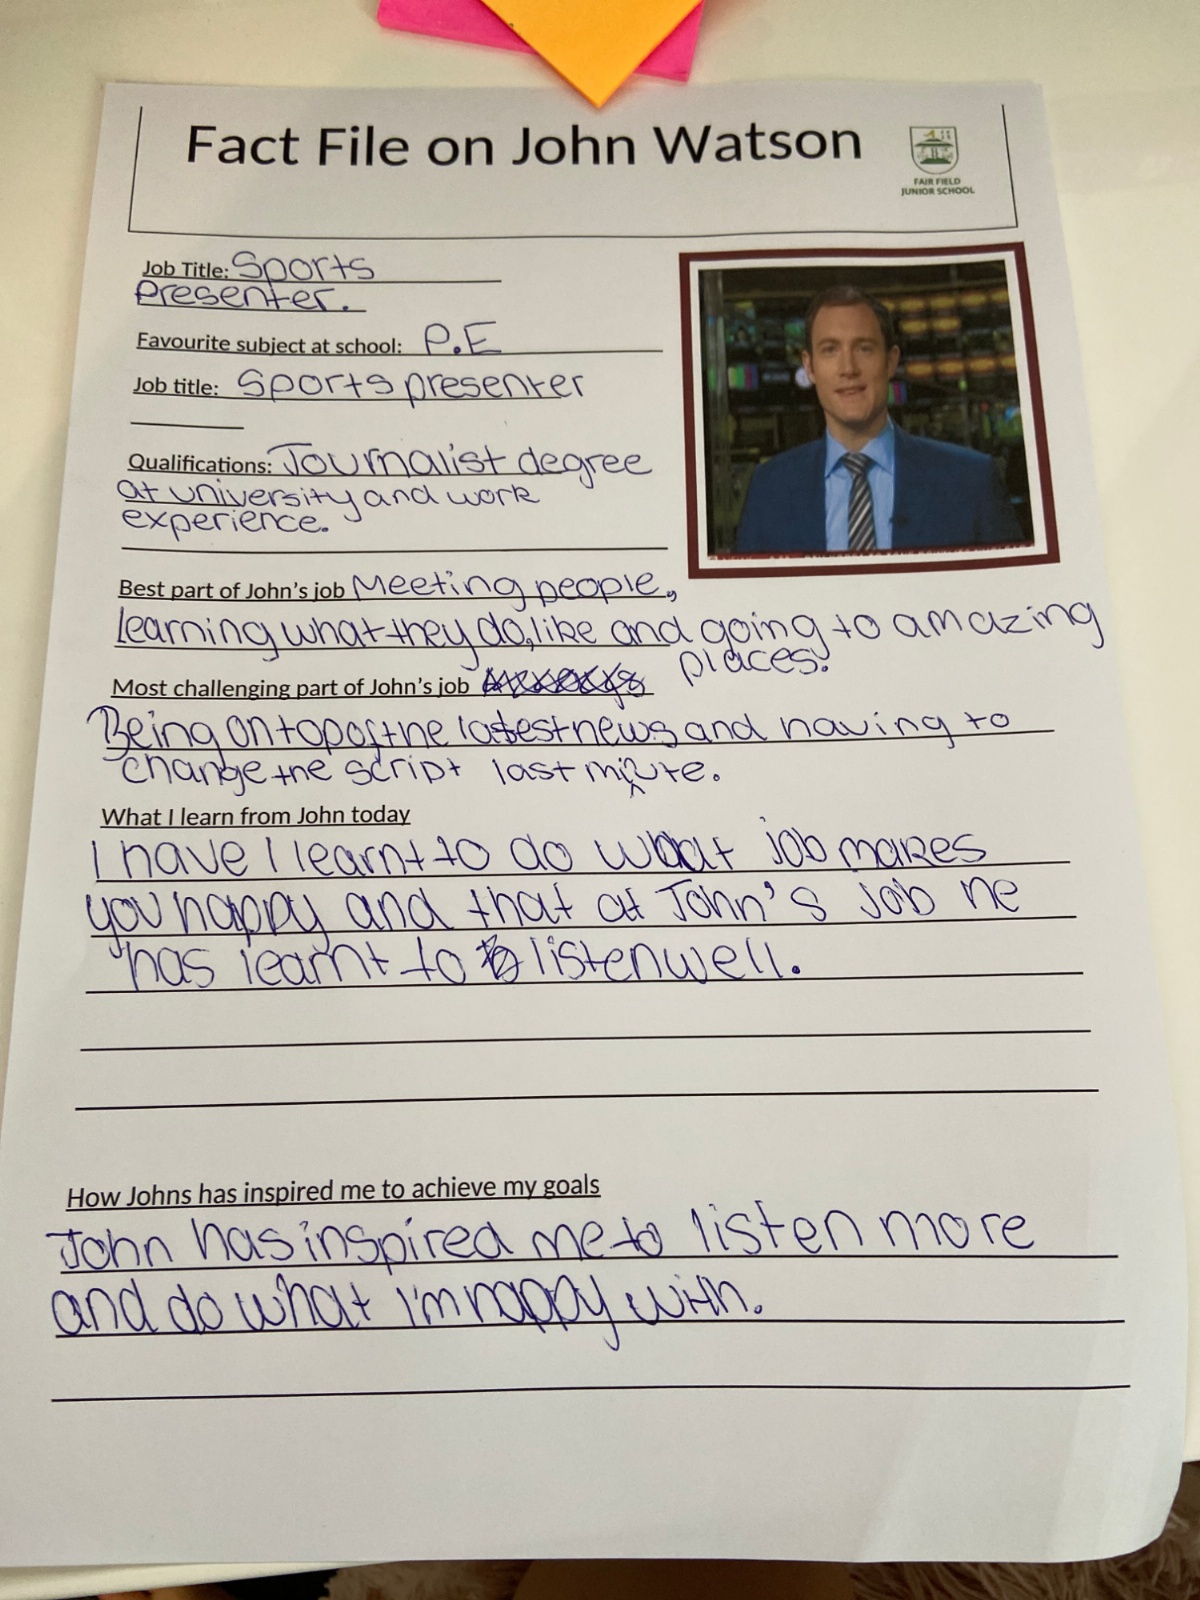 Fact File on John Watson
FAIR FIELD
JUNIOR SCHOOL
Job Title: Sports
Presenter.
Favourite subject at school: P.E
Job title: Sports presenter
Qualifications: Journalist degree
at university and work
experience.
Best part of John's job Meeting people,
learning what they do, like and going to amazing
places.
Most challenging part of John's job
Being on top of the latest news and having to
change the script last minute.
What I learn from John today
I have I learnt to do what job makes
you happy and that at John's job he
has learnt to listen well.
How Johns has inspired me to achieve my goals
John has inspired me to listen more
and do what I'm happy with.